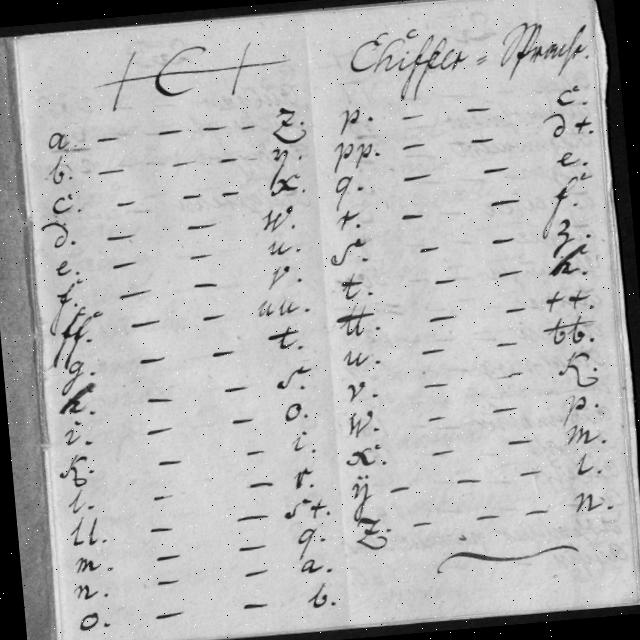 + C +
a. — — — — Z.
b. — — — y.
c. — — — x.
d. — — w.
e. — — u.
f. — — v.
ff. — — uu.
g. — — t.
h. — — s.
i. — — o.
K. — — i.
l. — — r.
ll. — — st.
m. — — q.
n. — — a.
o. — — b.
Chiffer =
p. — — c.
pp. — — d+.
q. — — e.
r. — — f.
s. — — g.
t. — — h.
tt. — — ++.
u. — — tt.
v. — — K.
w. — — p.
x. — — m.
ÿ — — — l.
Z. — — — n.